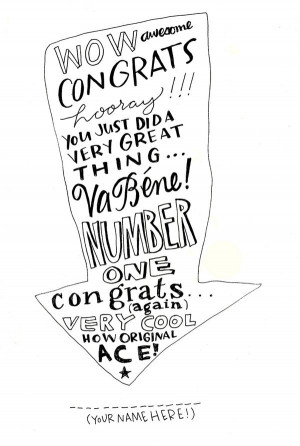 WOW awesome
CONGRATS
hooray!!!
YOU JUST DID A
VERY GREAT
THING...
Va Béne!
NUMBER
ONE
congrats...
(again)
VERY COOL
HOW ORIGINAL
ACE!
(YOUR NAME HERE!)